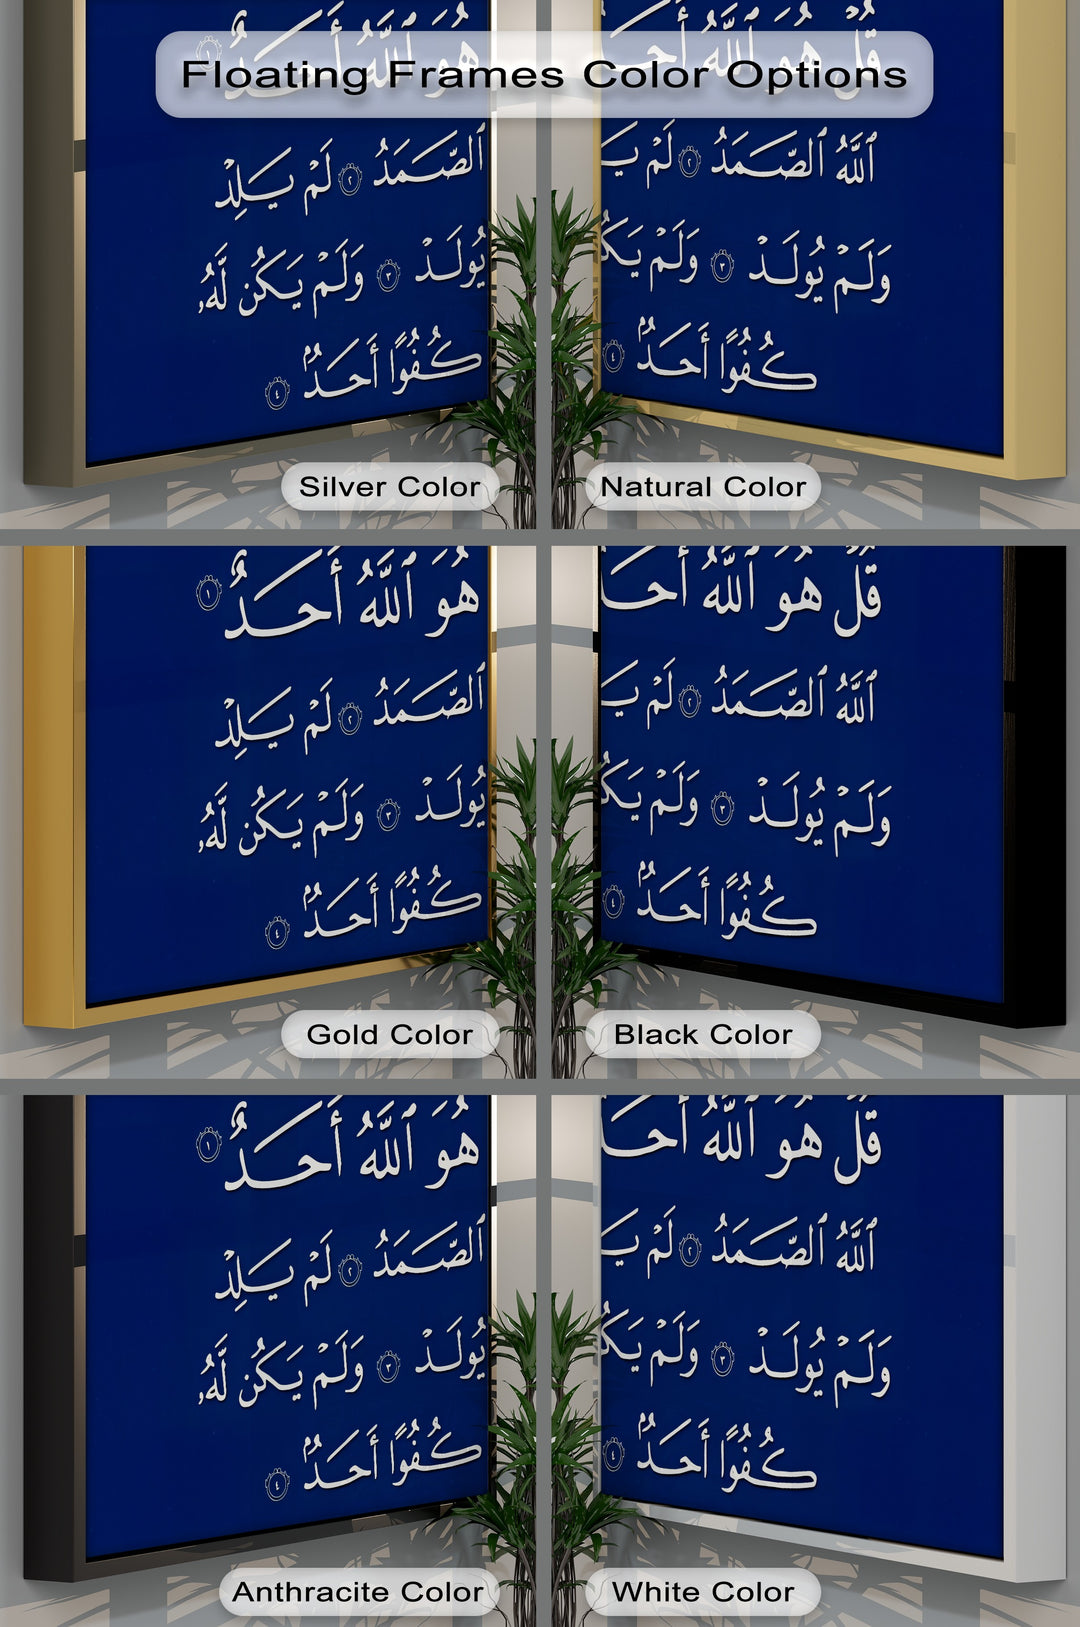 Floating Frames Color Options
هُوَ ٱللَّهُ أَحَدٌ ١
ٱلصَّمَدُ ٢ لَمْ يَلِدْ
يُولَدْ ٣ وَلَمْ يَكُن لَّهُۥ
كُفُوًا أَحَدٌۢ ٤
Silver Color
قُلْ هُوَ ٱللَّهُ
ٱللَّهُ ٱلصَّمَدُ ٢ لَمْ
وَلَمْ يُولَدْ ٣ وَلَمْ
كُفُوًا أَحَدٌۢ ٤
Natural Color
هُوَ ٱللَّهُ أَحَدٌ ١
ٱلصَّمَدُ ٢ لَمْ يَلِدْ
يُولَدْ ٣ وَلَمْ يَكُن لَّهُۥ
كُفُوًا أَحَدٌۢ ٤
Gold Color
قُلْ هُوَ ٱللَّهُ
ٱللَّهُ ٱلصَّمَدُ ٢ لَمْ
وَلَمْ يُولَدْ ٣ وَلَمْ
كُفُوًا أَحَدٌۢ ٤
Black Color
هُوَ ٱللَّهُ أَحَدٌ ١
ٱلصَّمَدُ ٢ لَمْ يَلِدْ
يُولَدْ ٣ وَلَمْ يَكُن لَّهُۥ
كُفُوًا أَحَدٌۢ ٤
Anthracite Color
قُلْ هُوَ ٱللَّهُ
ٱللَّهُ ٱلصَّمَدُ ٢ لَمْ
وَلَمْ يُولَدْ ٣ وَلَمْ
كُفُوًا أَحَدٌۢ ٤
White Color